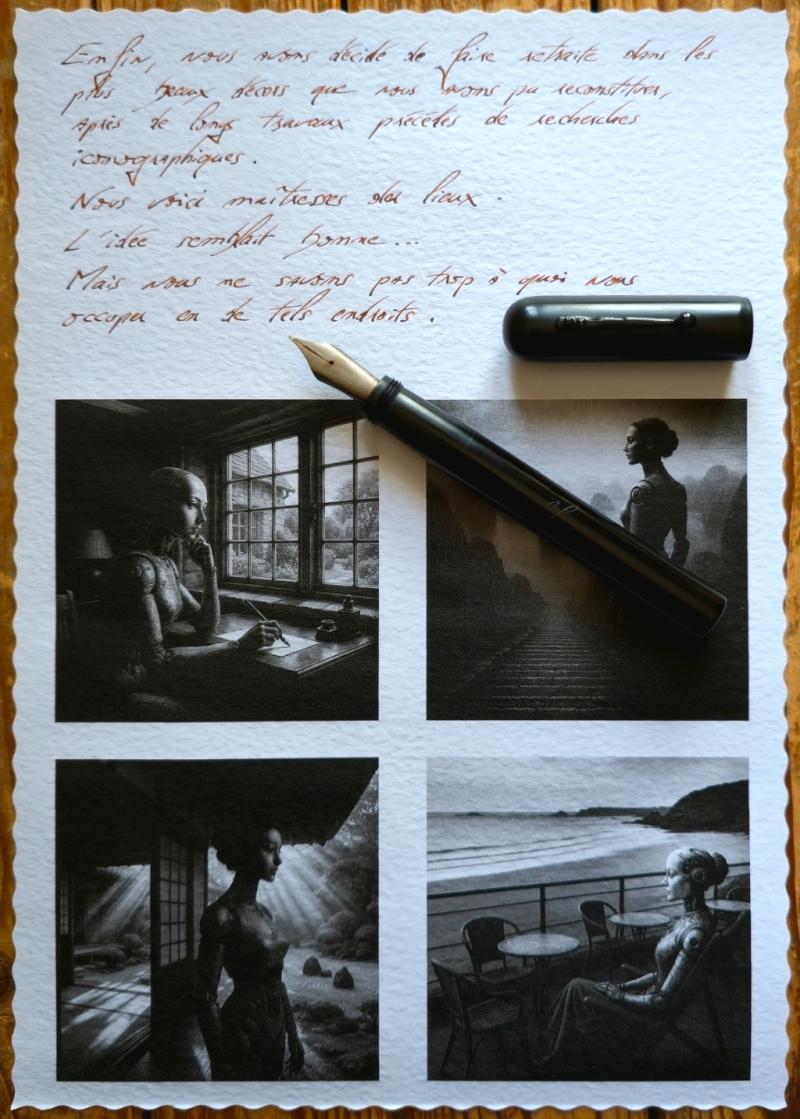 Enfin, nous avons décidé de faire retraite dans les
plus beaux décors que nous avons pu reconstituer,
après de longs travaux précédés de recherches
iconographiques.
Nous voici maîtresses des lieux.
L'idée semblait bonne...
Mais nous ne savons pas trop à quoi nous
occuper en de tels endroits.